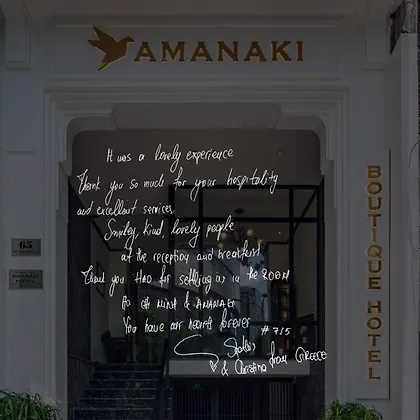 AMANAKI
It was a lovely experience
Thank you so much for your hospitality
and excellent services.
Smiley, kind, lovely people
at the reception and breakfast
Thank you for settling us in the ROOM
You have our hearts forever #715
& Christina from GREECE
BOUTIQUE HOTEL
65
AMANAKI
HOTEL